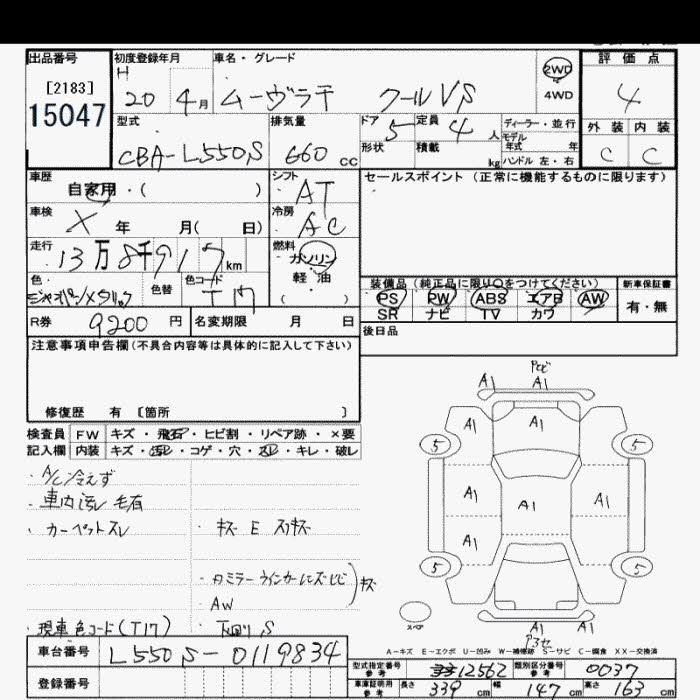 出品番号 初度登録年月 車名・グレード 評価点
[2183] H 20 4月 ムーヴラテ クールVS 2WD 4
15047 4WD
型式 排気量 ドア 5 定員 4人 ディーラー・並行 外装 内装
CBA-L550S 660cc 形状 積載 kg モデル年式 年 C C
ハンドル 左・右
車歴 シフト セールスポイント (正常に機能するものに限ります)
自家用・( ) AT
車検 冷房
X 年 月( 日) AC
走行 燃料
13万8千917km ガソリン
色 色替 色コード 軽油 装備品 (純正品に限り○をつけてください) 新車保証書
T17 ( ) PS PW ABS エアB AW 有・無
SR ナビ TV カワ
R券 9200円 名変期限 月 日 後日品
注意事項申告欄(不具合内容等は具体的に記入して下さい)
修復歴 有 [箇所 ]
検査員 FW キズ・飛石・ヒビ割・リペア跡・×要
記入欄 内装 キズ・汚レ・コゲ・穴・スレ・キレ・破レ
・A/C冷えず
・車内汚レ毛有
・カーペットスレ ・キズ E スリキズ
キズ
・AW
・現車色コード(T17) ・下回りS
A1 A1
A1 A1 A1
5 5
A1 A1 A1
A1
5 5
A1 A1
A-キズ E-エクボ U-凹み W-補修跡 S-サビ C-腐食 XX-交換済
車台番号 L550S-0119834
登録番号
型式指定番号 参考 12562 類別区分番号 参考 0037
車庫証明用 参考 長さ 339cm 幅 147cm 高さ 163cm